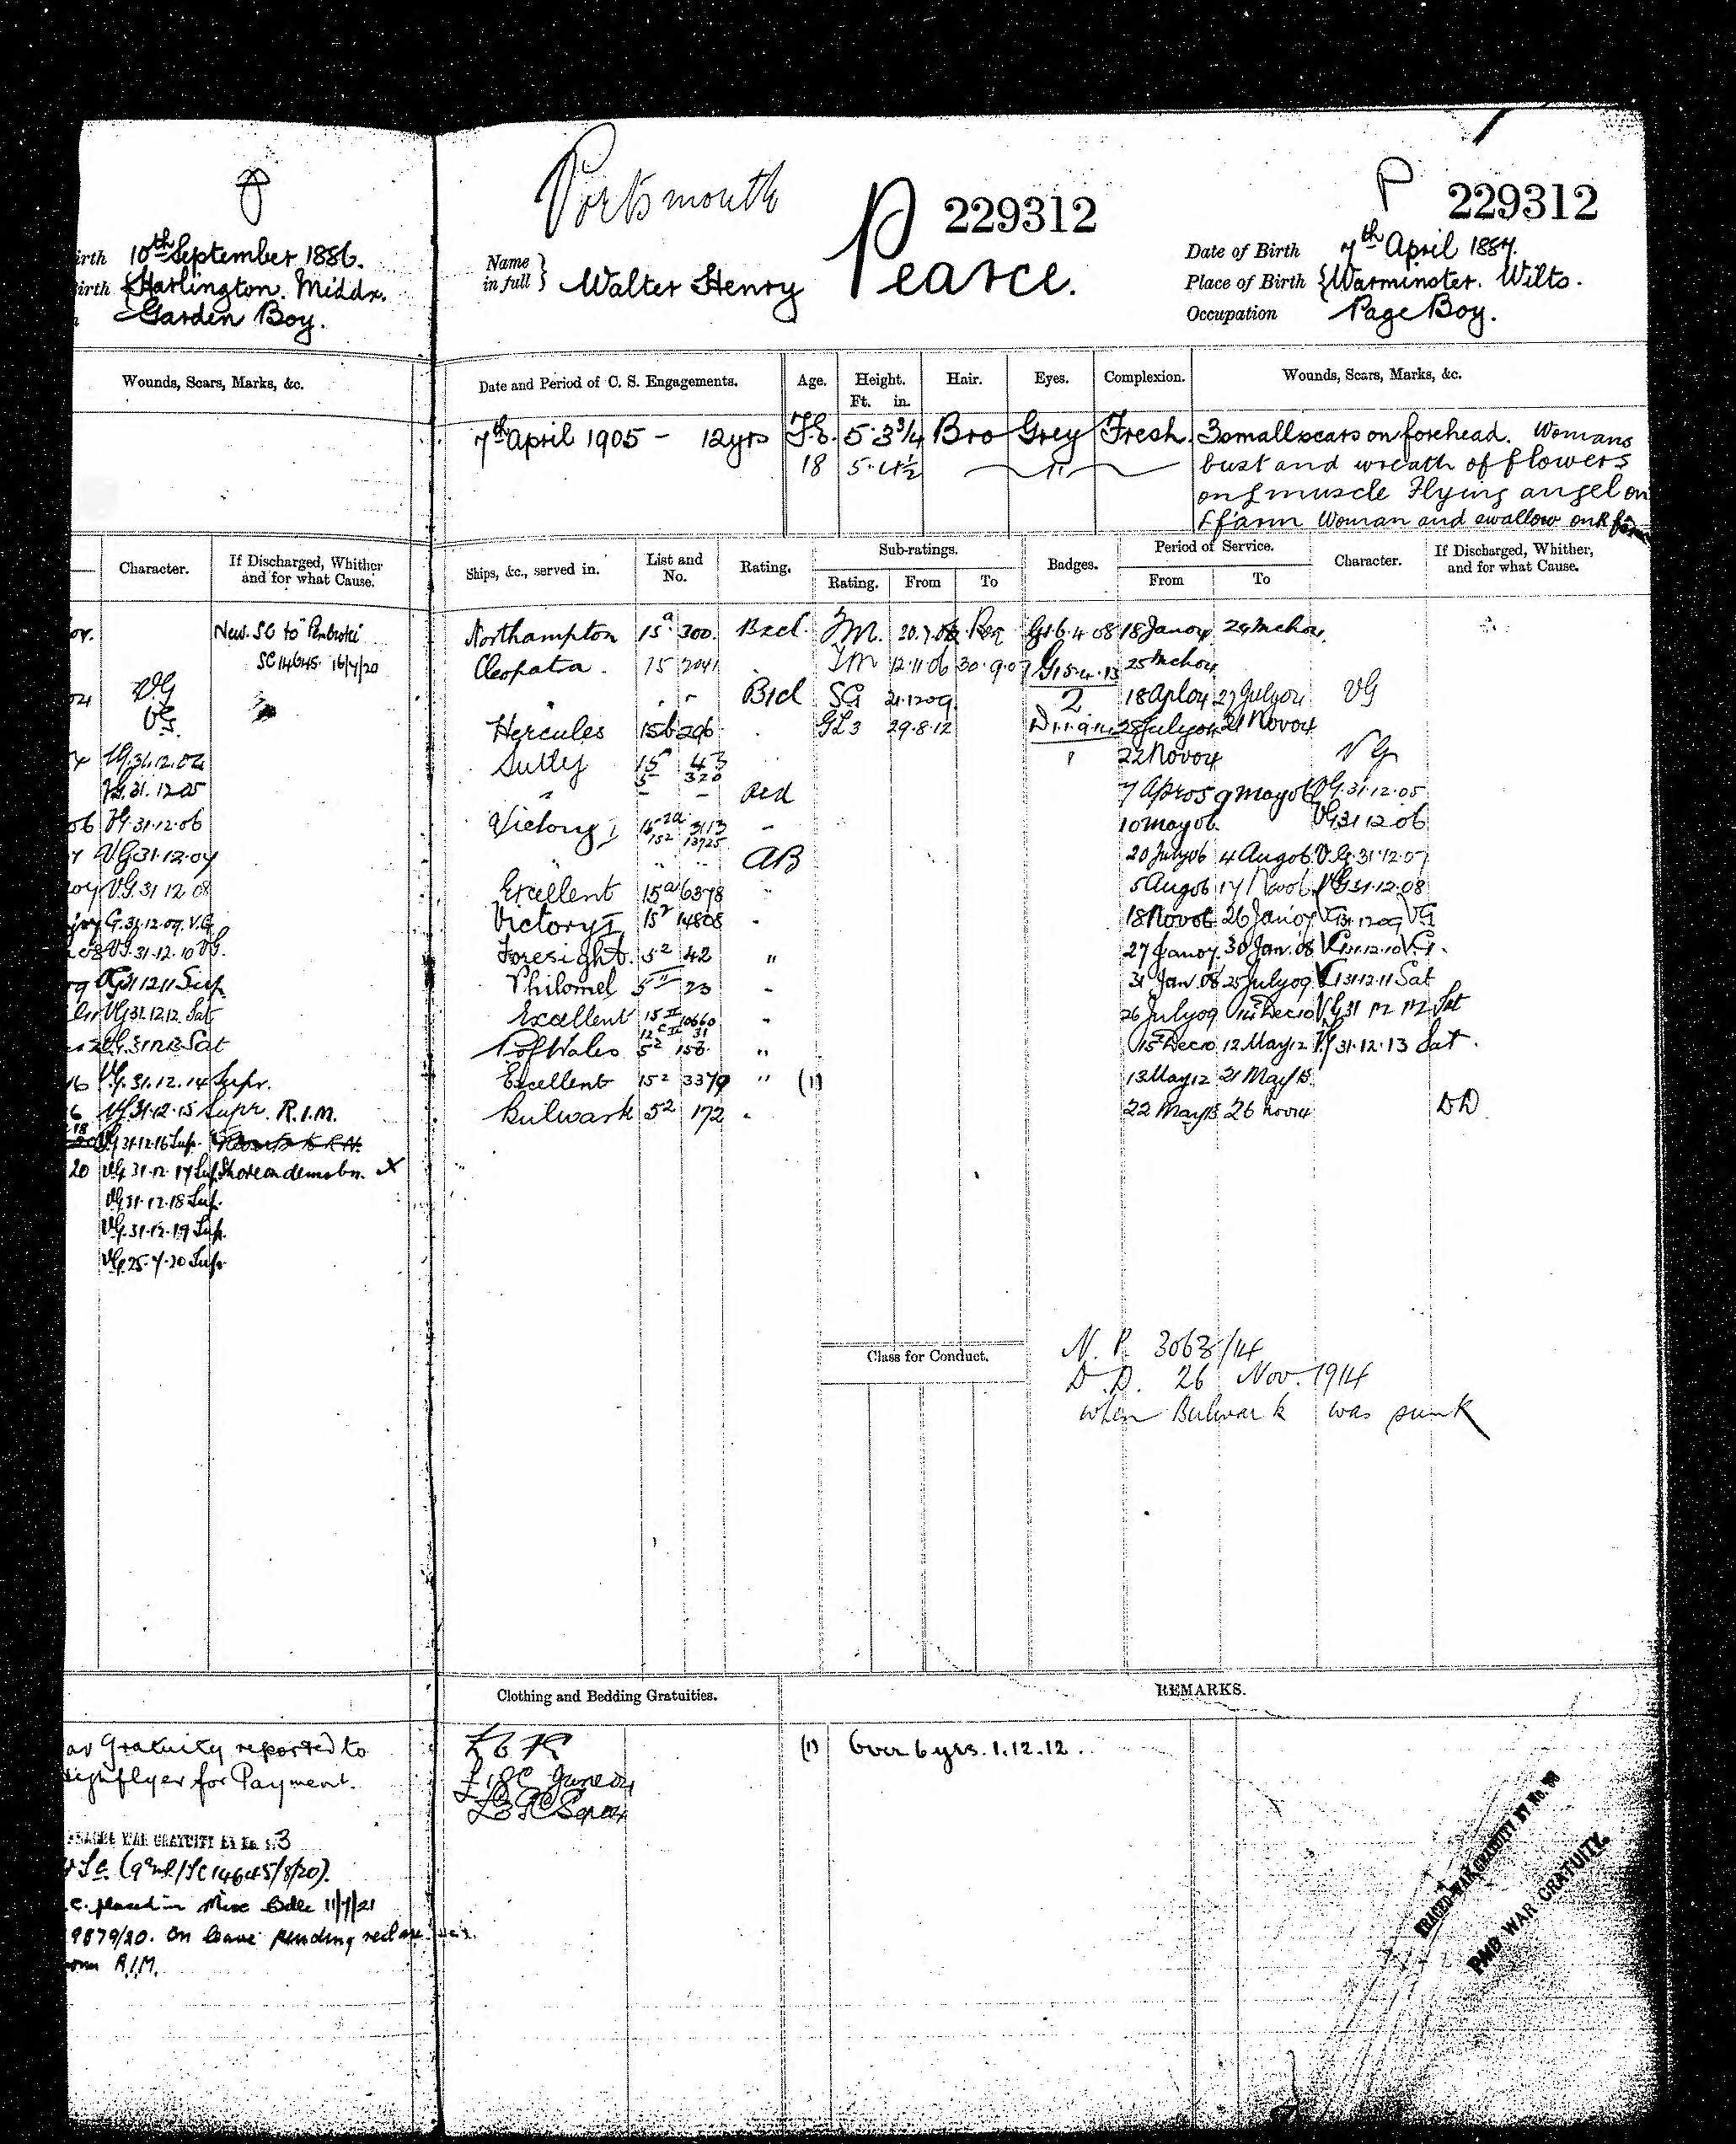 irth 10th September 1886.
irth Harlington. Middx.
Garden Boy.
Wounds, Scars, Marks, &c.
Character.
If Discharged, Whither
and for what Cause.
New. SC to "Pembroke"
SC14645 16/7/20
VG
VG.
VG.31.12.05
06 VG.31.12.06
VG.31.12.07
VG.31 12 08
G.31.12.09. V.G
08 VG.31.12.10 VG.
VG 31 12 11 Sup
VG 31.12.12. Sat
VG. 31.12.13 Sat
16 VG. 31.12.14 Supr.
6 VG 31.12.15 Supr. R.I.M.
VG 31.12.16 Sup.
20 VG. 31.12.17 Sup. Shore on demobn. X
VG 31.12.18 Sup.
VG. 31.12.19 Sup.
VG. 25.7.20 Supr
ar Gratuity reported to
ighflyer for Payment.
TRACED WAR GRATUITY BY No. 3
(9879/SC14645/8/20).
.C. placed in Misc Bdle 11/7/21
9879/20. On leave pending release
R.I.M.
Portsmouth
P 229312
P 229312
Name
in full } Walter Henry Pearce.
Date of Birth 7th April 1887.
Place of Birth { Warminster. Wilts.
Occupation Page Boy.
Date and Period of C. S. Engagements.
Age.
Height.
Ft. in.
Hair.
Eyes.
Complexion.
Wounds, Scars, Marks, &c.
7th April 1905 - 12yrs T.E. 5.3¾ Bro Grey Fresh. 3 small scars on forehead. Womans
18 5.4½ " bust and wreath of flowers
on L muscle Flying angel on
L f'arm Woman and swallow on R
Ships, &c., served in.
List and
No.
Rating.
Sub-ratings.
Rating. From To
Badges.
Period of Service.
From To
Character.
If Discharged, Whither,
and for what Cause.
Northampton 15a 300. B2cl. T.M. 20.7.06 Req G1 6.4.08 18 Jan 04 24 Mch 04
Cleopatra. 15 2041 T M 12.11.06 30.9.07 G1 5.4.13 25 Mch 04
" " " B1cl SG 21.12.09 2 18 Apl 04 27 July 04 VG
Hercules 15b 296 GL3 29.8.12 28 July 04 21 Nov 04
Sutlej 15 43 22 Nov 04 VG
5 320
" - - Ord 7 Apr 05 9 May 06 VG.31.12.05
Victory I 15 2a 3113 - 10 May 06 VG 31 12 06
15 2 13725
" " " AB 20 July 06 4 Aug 06 V.G. 31.12.07
Excellent 15a 6378 " 5 Aug 06 17 Nov 06 VG 31.12.08
Victory I 15 2 14808 - 18 Nov 06 26 Jan 07 VG 31.12.09 VG
Foresight. 5 2 42 " 27 Jan 07 30 Jan. 08 VG 31.12.10 V.G.
Philomel 5 II 23 - 31 Jan. 08 25 July 09 VG 31.12.11 Sat
Excellent 15 II 10660 " 26 July 09 14 Dec 10 VG 31 12 12 Sat
12c II 31
P of Wales 5 2 156. " 15 Dec 10 12 May 12 VG 31.12.13 Sat.
Excellent 15 2 3379 " (1) 13 May 12 21 May 13
Bulwark 5 2 172 " 22 May 13 26 Nov 14 DD
Class for Conduct.
N. P. 3063/14
D.D. 26 Nov. 1914
when Bulwark was sunk
Clothing and Bedding Gratuities.
REMARKS.
(1) Over 6 yrs. 1.12.12.
TRACED WAR GRATUITY BY No.
RMB WAR GRATUITY.